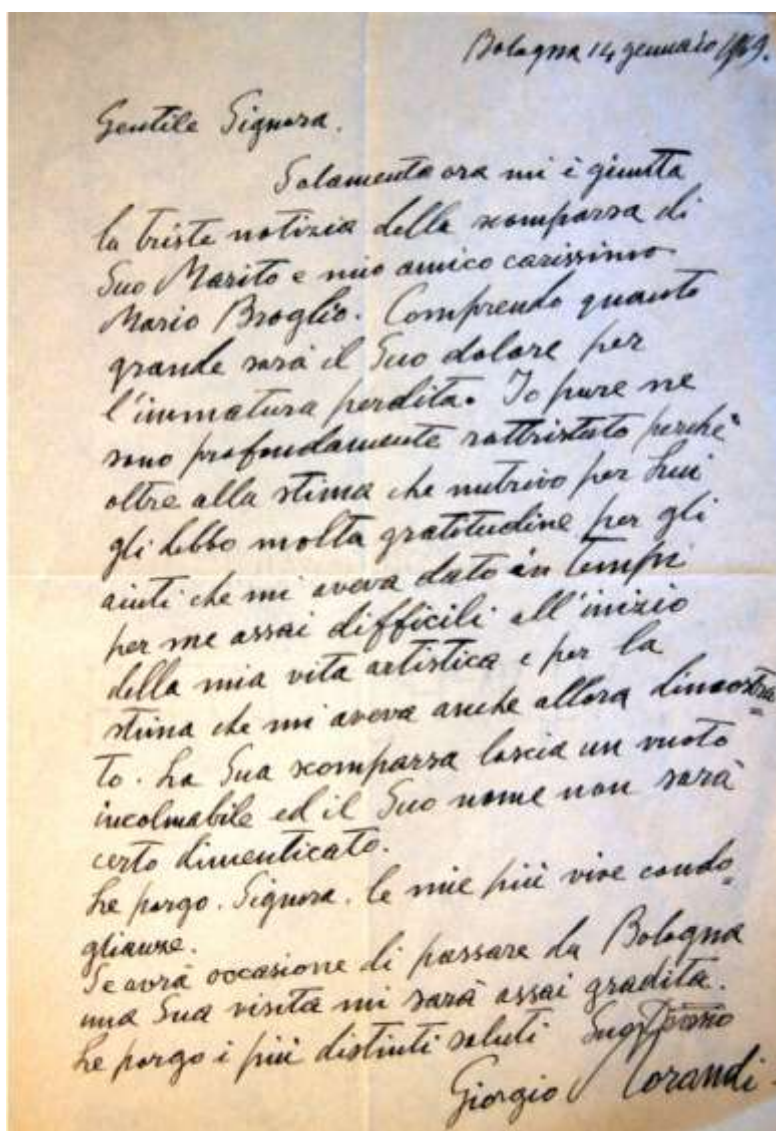 Bologna 14 gennaio 1949.
Gentile Signora.
Solamente ora mi è giunta
la triste notizia della scomparsa di
Suo Marito e mio amico carissimo
Mario Broglio. Comprendo quanto
grande sarà il Suo dolore per
l'immatura perdita. Io pure ne
sono profondamente rattristato perchè
oltre alla stima che nutrivo per Lui
gli debbo molta gratitudine per gli
aiuti che mi aveva dato in tempi
per me assai difficili all'inizio
della mia vita artistica e per la
stima che mi aveva anche allora dimostra=
to. La Sua scomparsa lascia un vuoto
incolmabile ed il Suo nome non sarà
certo dimenticato.
Le porgo. Signora. le mie più vive condo=
glianze.
Se avrà occasione di passare da Bologna
una Sua visita mi sarà assai gradita.
Le porgo i più distinti saluti
Giorgio Morandi.